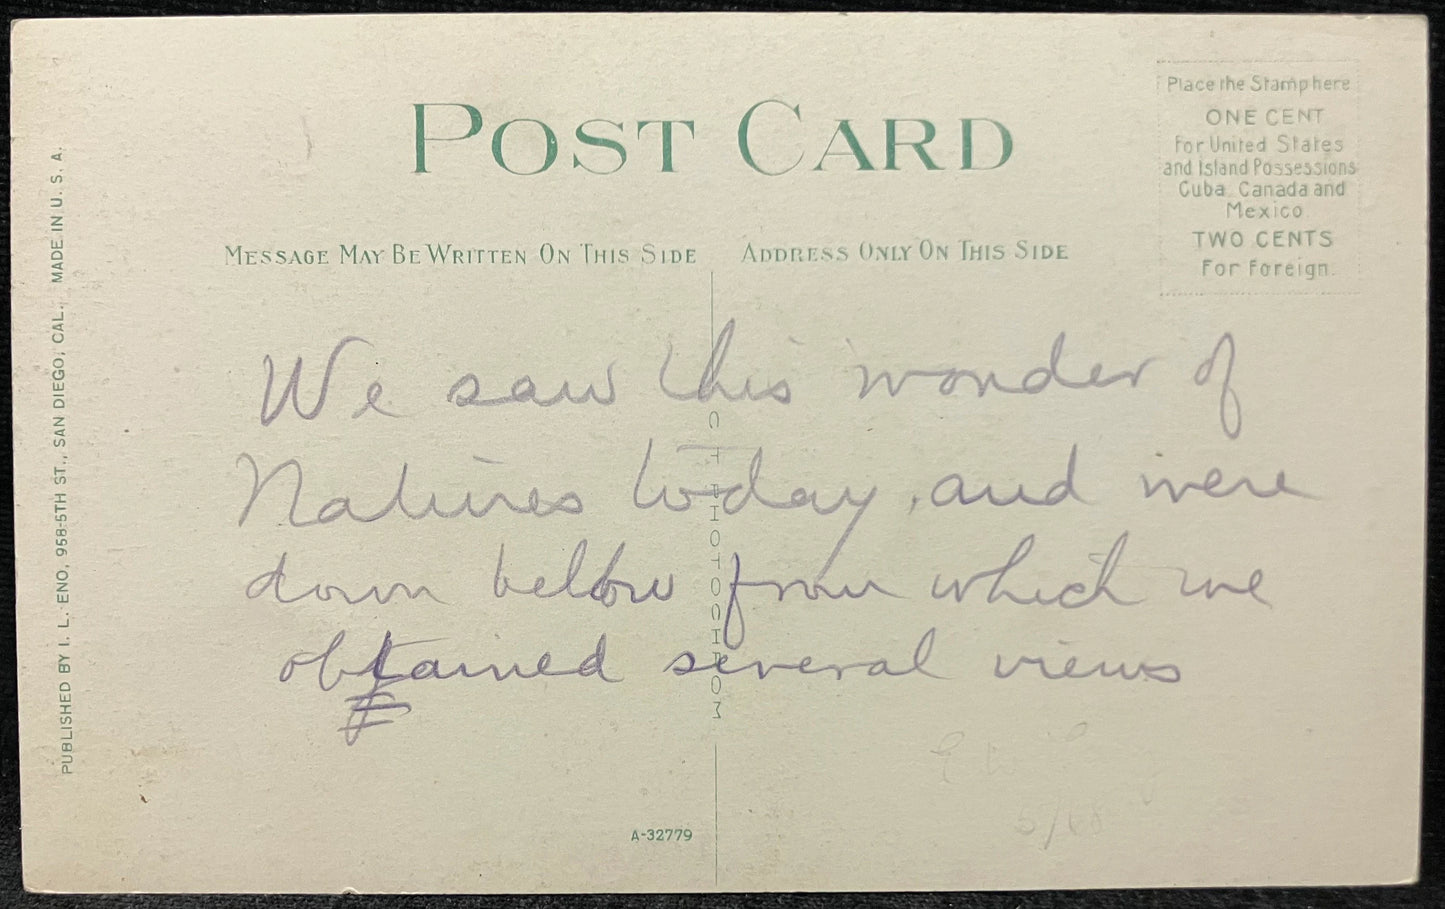 POST CARD
Place the Stamp here
ONE CENT
For United States
and Island Possessions
Cuba, Canada and
Mexico
TWO CENTS
For Foreign.
MESSAGE MAY BE WRITTEN ON THIS SIDE
ADDRESS ONLY ON THIS SIDE
We saw this wonder of
Natures today, and were
down bellow from which we
obtained several views
PUBLISHED BY I. L. ENO, 958-5TH ST., SAN DIEGO, CAL. MADE IN U. S. A.
C T PHOTOCHROM
A-32779